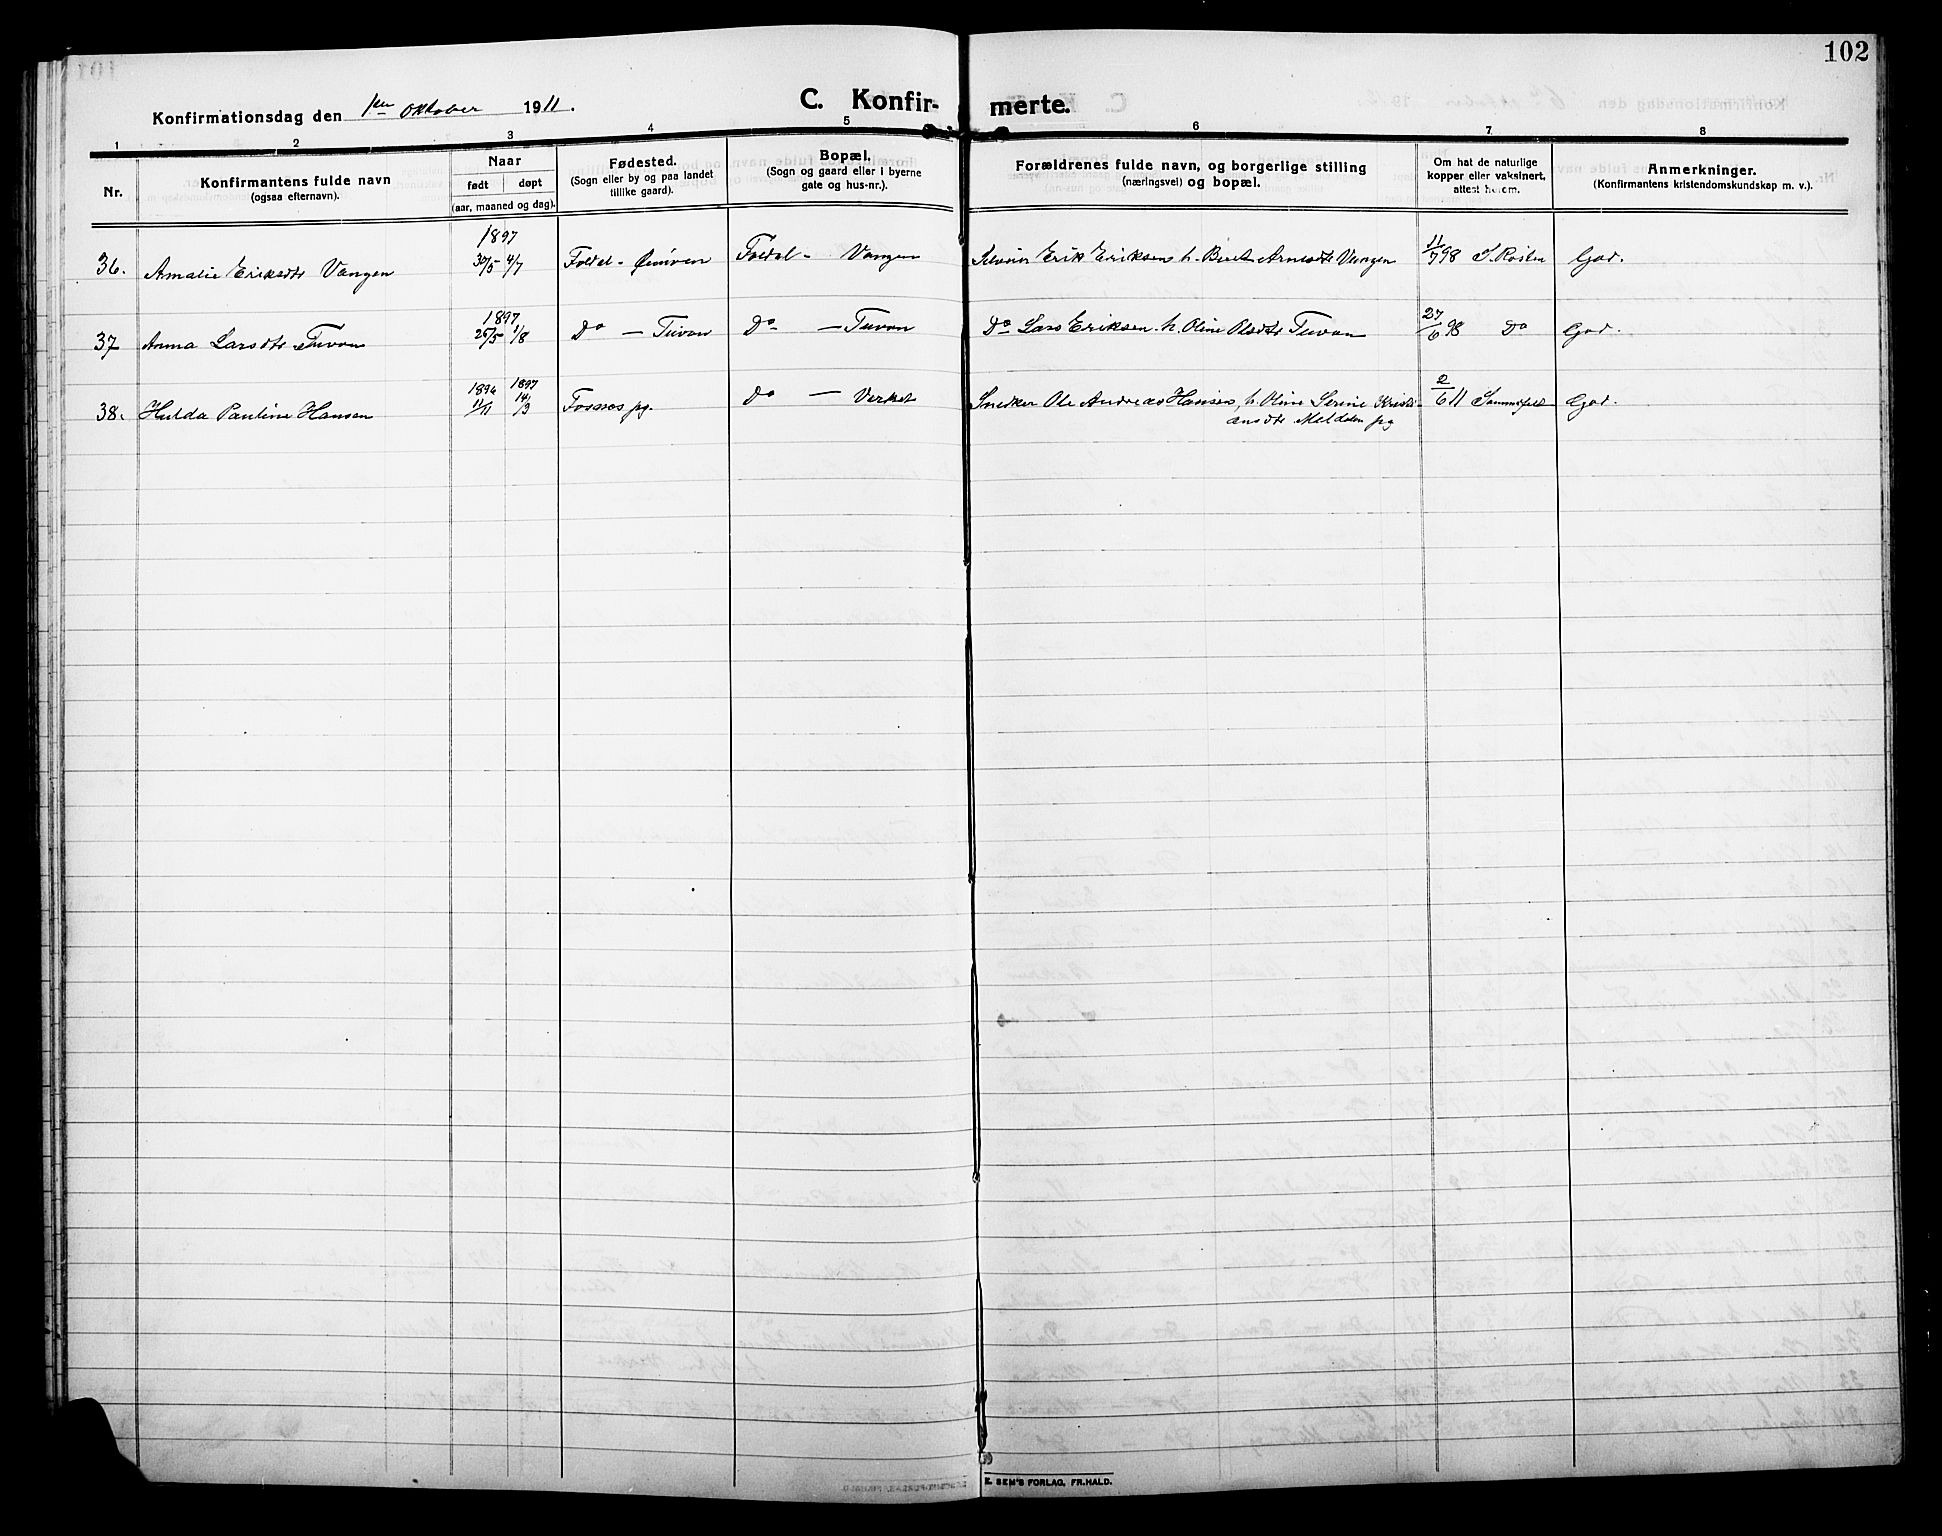 102
Konfirmationsdag den 1ste oktober 1911.
C. Konfir- merte.
1 2 3 4 5 6 7 8
Nr.
Konfirmantens fulde navn
(ogsaa efternavn).
Naar
født døpt
(aar, maaned og dag).
Fødested.
(Sogn eller by og paa landet
tillike gaard).
Bopæl.
(Sogn og gaard eller i byerne
gate og hus-nr.).
Forældrenes fulde navn, og borgerlige stilling
(næringsvei) og bopæl.
Om hat de naturlige
kopper eller vaksinert,
attest herom.
Anmerkninger.
(Konfirmantens kristendomskundskap m. v.).
1897
36. Amalie Eriksdtr Vangen 30/5 4/7 Foldal - Foldal - Vangen Erik Eriksen h. Beret Arnesdtr Vangen 11/7 98 God.
1897
37 Anna Larsdtr Tuvan 25/5 1/8 Do — Tuvan Do — Tuvan Do Lars Eriksen h. Oline Olsdtr Tuvan 27/6 98 Do God.
1896 1897
38. Hulda Pauline Hansen 11/11 14/3 Fosnes pg. Do — Verket Snedker Ole Andreas Hansen, h. Oline Serine Kristi-
ansdtr Meldalen pg
2/6 11 Sommerfeldt God.
E. SEM'S FORLAG, FR.HALD.